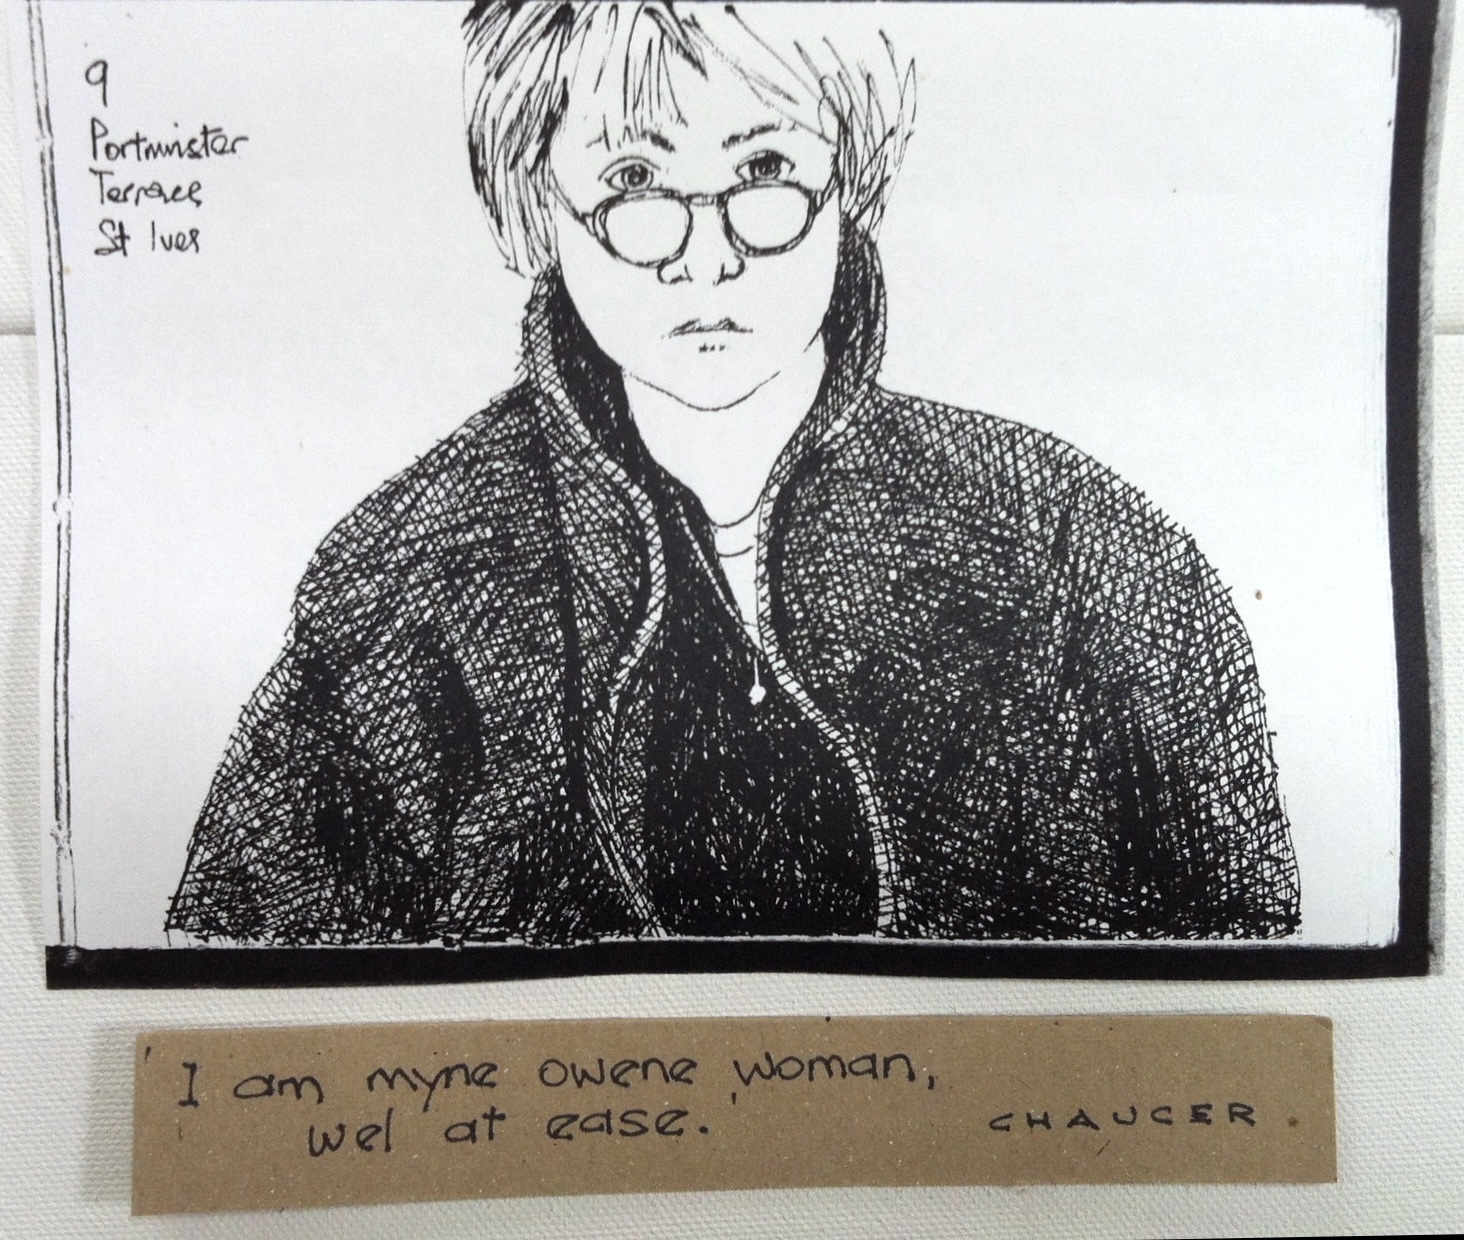 9
Portminster
Terrace
St Ives
'I am myne owene woman,
wel at ease.'
CHAUCER